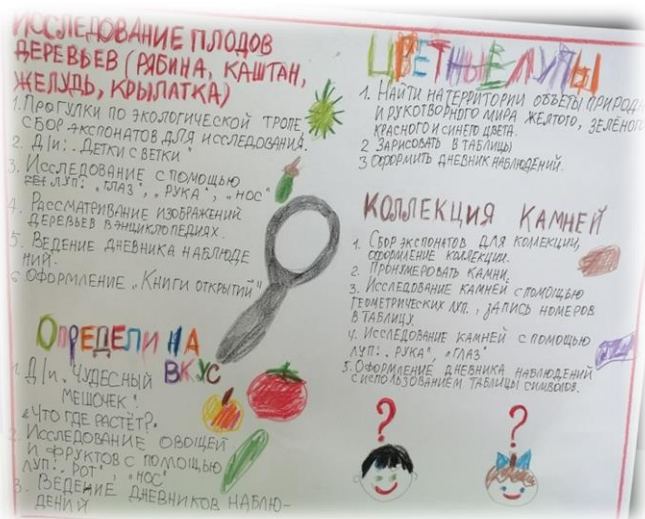 ИССЛЕДОВАНИЕ ПЛОДОВ
ДЕРЕВЬЕВ (РЯБИНА, КАШТАН,
ЖЕЛУДЬ, КРЫЛАТКА)
1. ПРОГУЛКИ ПО ЭКОЛОГИЧЕСКОЙ ТРОПЕ,
СБОР ЭКСПОНАТОВ ДЛЯ ИССЛЕДОВАНИЯ.
2. Д/И: „ДЕТКИ С ВЕТКИ"
3. ИССЛЕДОВАНИЕ С ПОМОЩЬЮ
ЛУП: „ГЛАЗ", „РУКА", „НОС"
4. РАССМАТРИВАНИЕ ИЗОБРАЖЕНИЙ
ДЕРЕВЬЕВ В ЭНЦИКЛОПЕДИЯХ.
5. ВЕДЕНИЕ ДНЕВНИКА НАБЛЮДЕ
НИЙ.
6. ОФОРМЛЕНИЕ „КНИГИ ОТКРЫТИЙ"
ОПРЕДЕЛИ НА
ВКУС
1. Д/И „ЧУДЕСНЫЙ
МЕШОЧЕК".
«ЧТО ГДЕ РАСТЁТ?»
2. ИССЛЕДОВАНИЕ ОВОЩЕЙ
И ФРУКТОВ С ПОМОЩЬЮ
ЛУП: „РОТ", „НОС"
3. ВЕДЕНИЕ ДНЕВНИКОВ НАБЛЮ-
ДЕНИЙ
ЦВЕТНЫЕ ЛУПЫ
1. НАЙТИ НА ТЕРРИТОРИИ ОБЪЕТЫ ПРИРОДН
И РУКОТВОРНОГО МИРА ЖЕЛТОГО, ЗЕЛЁНОГО
КРАСНОГО И СИНЕГО ЦВЕТА.
2 ЗАРИСОВАТЬ В ТАБЛИЦЫ
3 ОФОРМИТЬ ДНЕВНИК НАБЛЮДЕНИЙ.
КОЛЛЕКЦИЯ КАМНЕЙ
1. СБОР ЭКСПОНАТОВ ДЛЯ КОЛЛЕКЦИИ,
ОФОРМЛЕНИЕ КОЛЛЕКЦИИ.
2. ПРОНУМЕРОВАТЬ КАМНИ.
3. ИССЛЕДОВАНИЕ КАМНЕЙ С ПОМОЩЬЮ
ГЕОМЕТРИЧЕСКИХ ЛУП., ЗАПИСЬ НОМЕРОВ
В ТАБЛИЦУ.
4. ИССЛЕДОВАНИЕ КАМНЕЙ С ПОМОЩЬЮ
ЛУП: „РУКА", „ГЛАЗ"
5. ОФОРМЛЕНИЕ ДНЕВНИКА НАБЛЮДЕНИЙ
С ИСПОЛЬЗОВАНИЕМ ТАБЛИЦЫ СИМВОЛОВ.
? ?